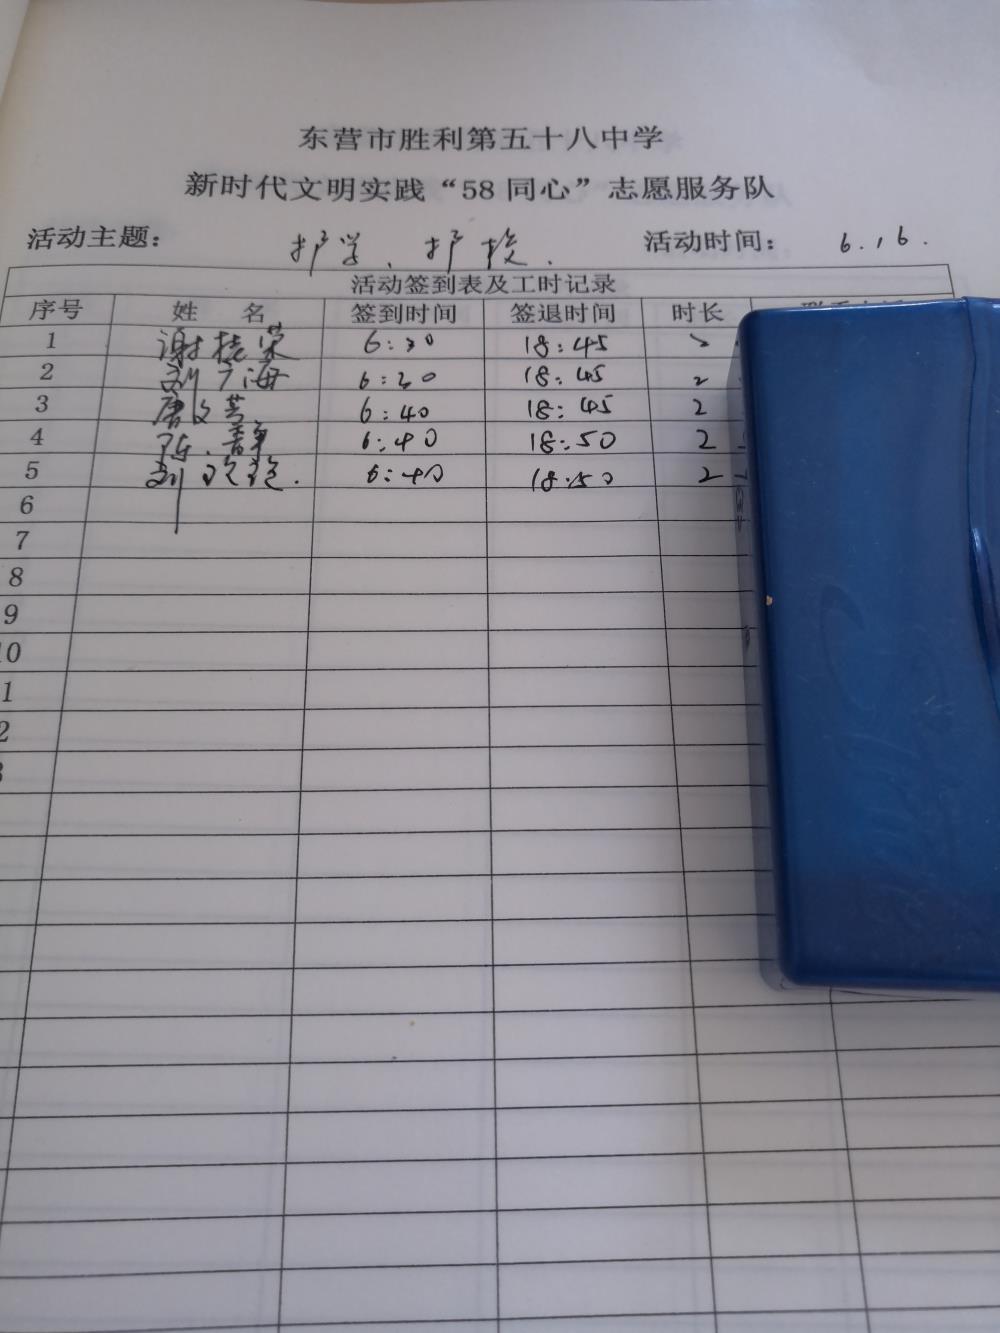 东营市胜利第五十八中学
新时代文明实践“58同心”志愿服务队
活动主题: 护学、护校. 活动时间: 6.16.
活动签到表及工时记录
序号 姓 名 签到时间 签退时间 时长
1 谢 荣 6:30 18:45 2
2 刘广海 6:30 18:45 2
3 唐文 6:40 18:45 2
4 陈 6:40 18:50 2
5 刘 6:40 18:50 2
6
7
8
9
10
1
2
3